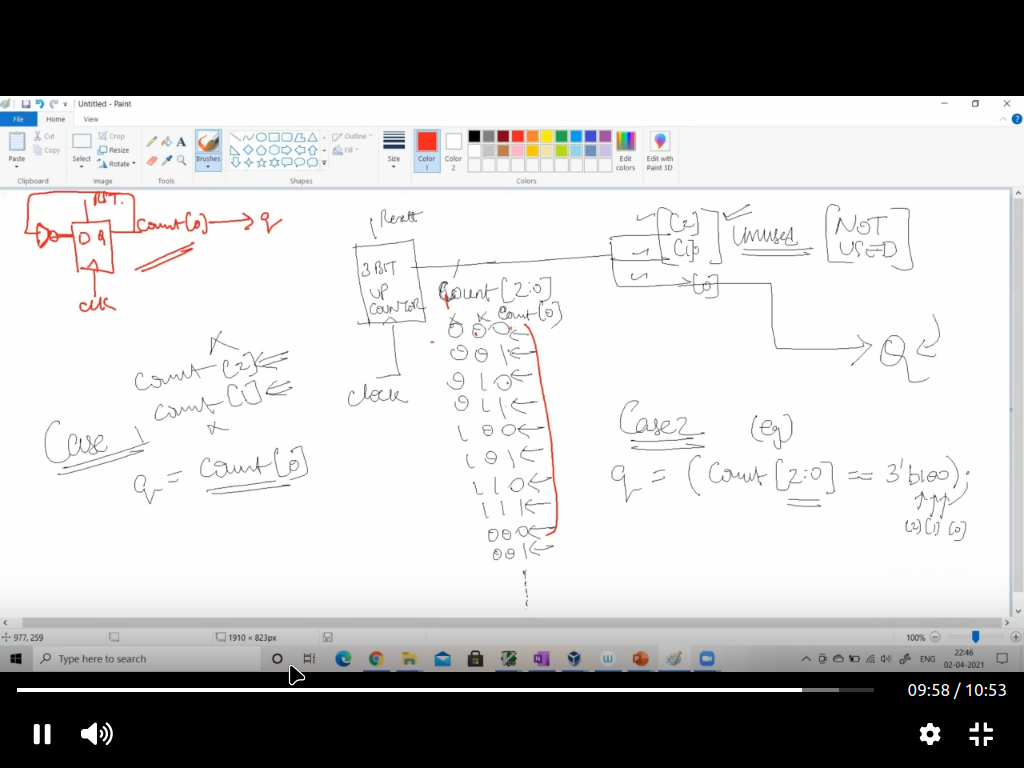 Untitled - Paint
File
Home
View
Paste
Cut
Copy
Clipboard
Select
Crop
Resize
Rotate
Image
Tools
Brushes
Shapes
Outline
Fill
Size
Color 1
Color 2
Colors
Edit colors
Edit with Paint 3D
RST.
D Q
count[0] → q
clk
Reset
3 BIT
UP
COUNTOR
clock
Count [2:0]
x x count[0]
0 0 0
0 0 1
0 1 0
0 1 1
1 0 0
1 0 1
1 1 0
1 1 1
0 0 0
0 0 1
[2]
[1]
[0]
Unused
[NOT USED]
Q
x
count [2]
count [1]
x
Case 1
q = count[0]
Case 2 (eg)
q = (Count [2:0] == 3'b100);
[2] [1] [0]
977, 259
1910 × 823px
100%
Type here to search
ENG
22:46
02-04-2021
09:58 / 10:53